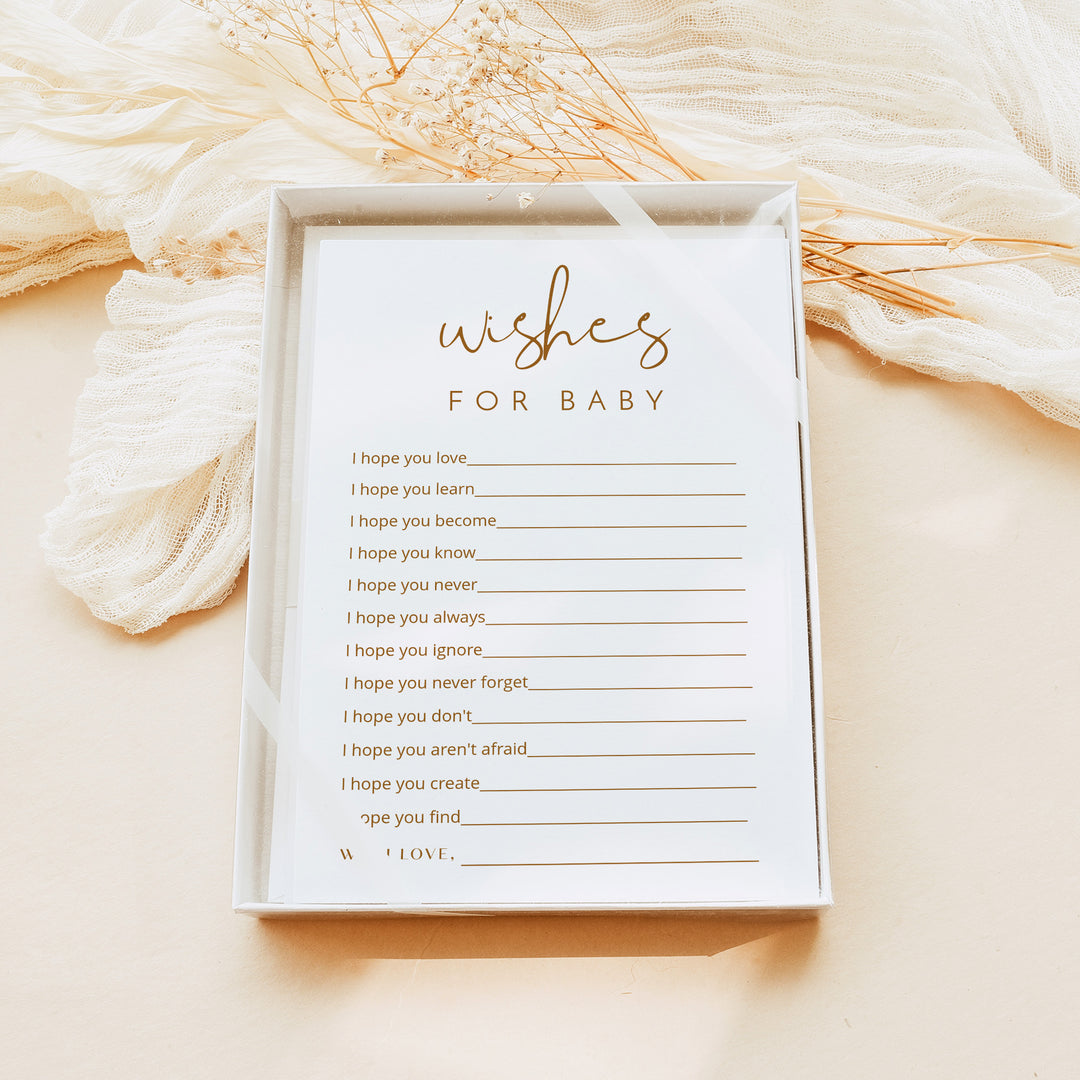 wishes
FOR BABY
I hope you love
I hope you learn
I hope you become
I hope you know
I hope you never
I hope you always
I hope you ignore
I hope you never forget
I hope you don't
I hope you aren't afraid
I hope you create
ope you find
LOVE,